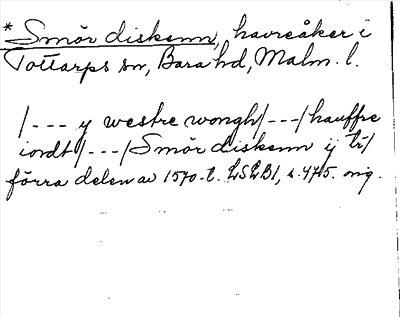 * Smör diskenn, havreåker i
Tottarps sn, Bara hd, Malm. l.
/--- y westre wongh/---/hauffre
iordt/---/Smör diskenn ij tr/
förra delen av 1570-t. LSLB1, s. 475. orig.